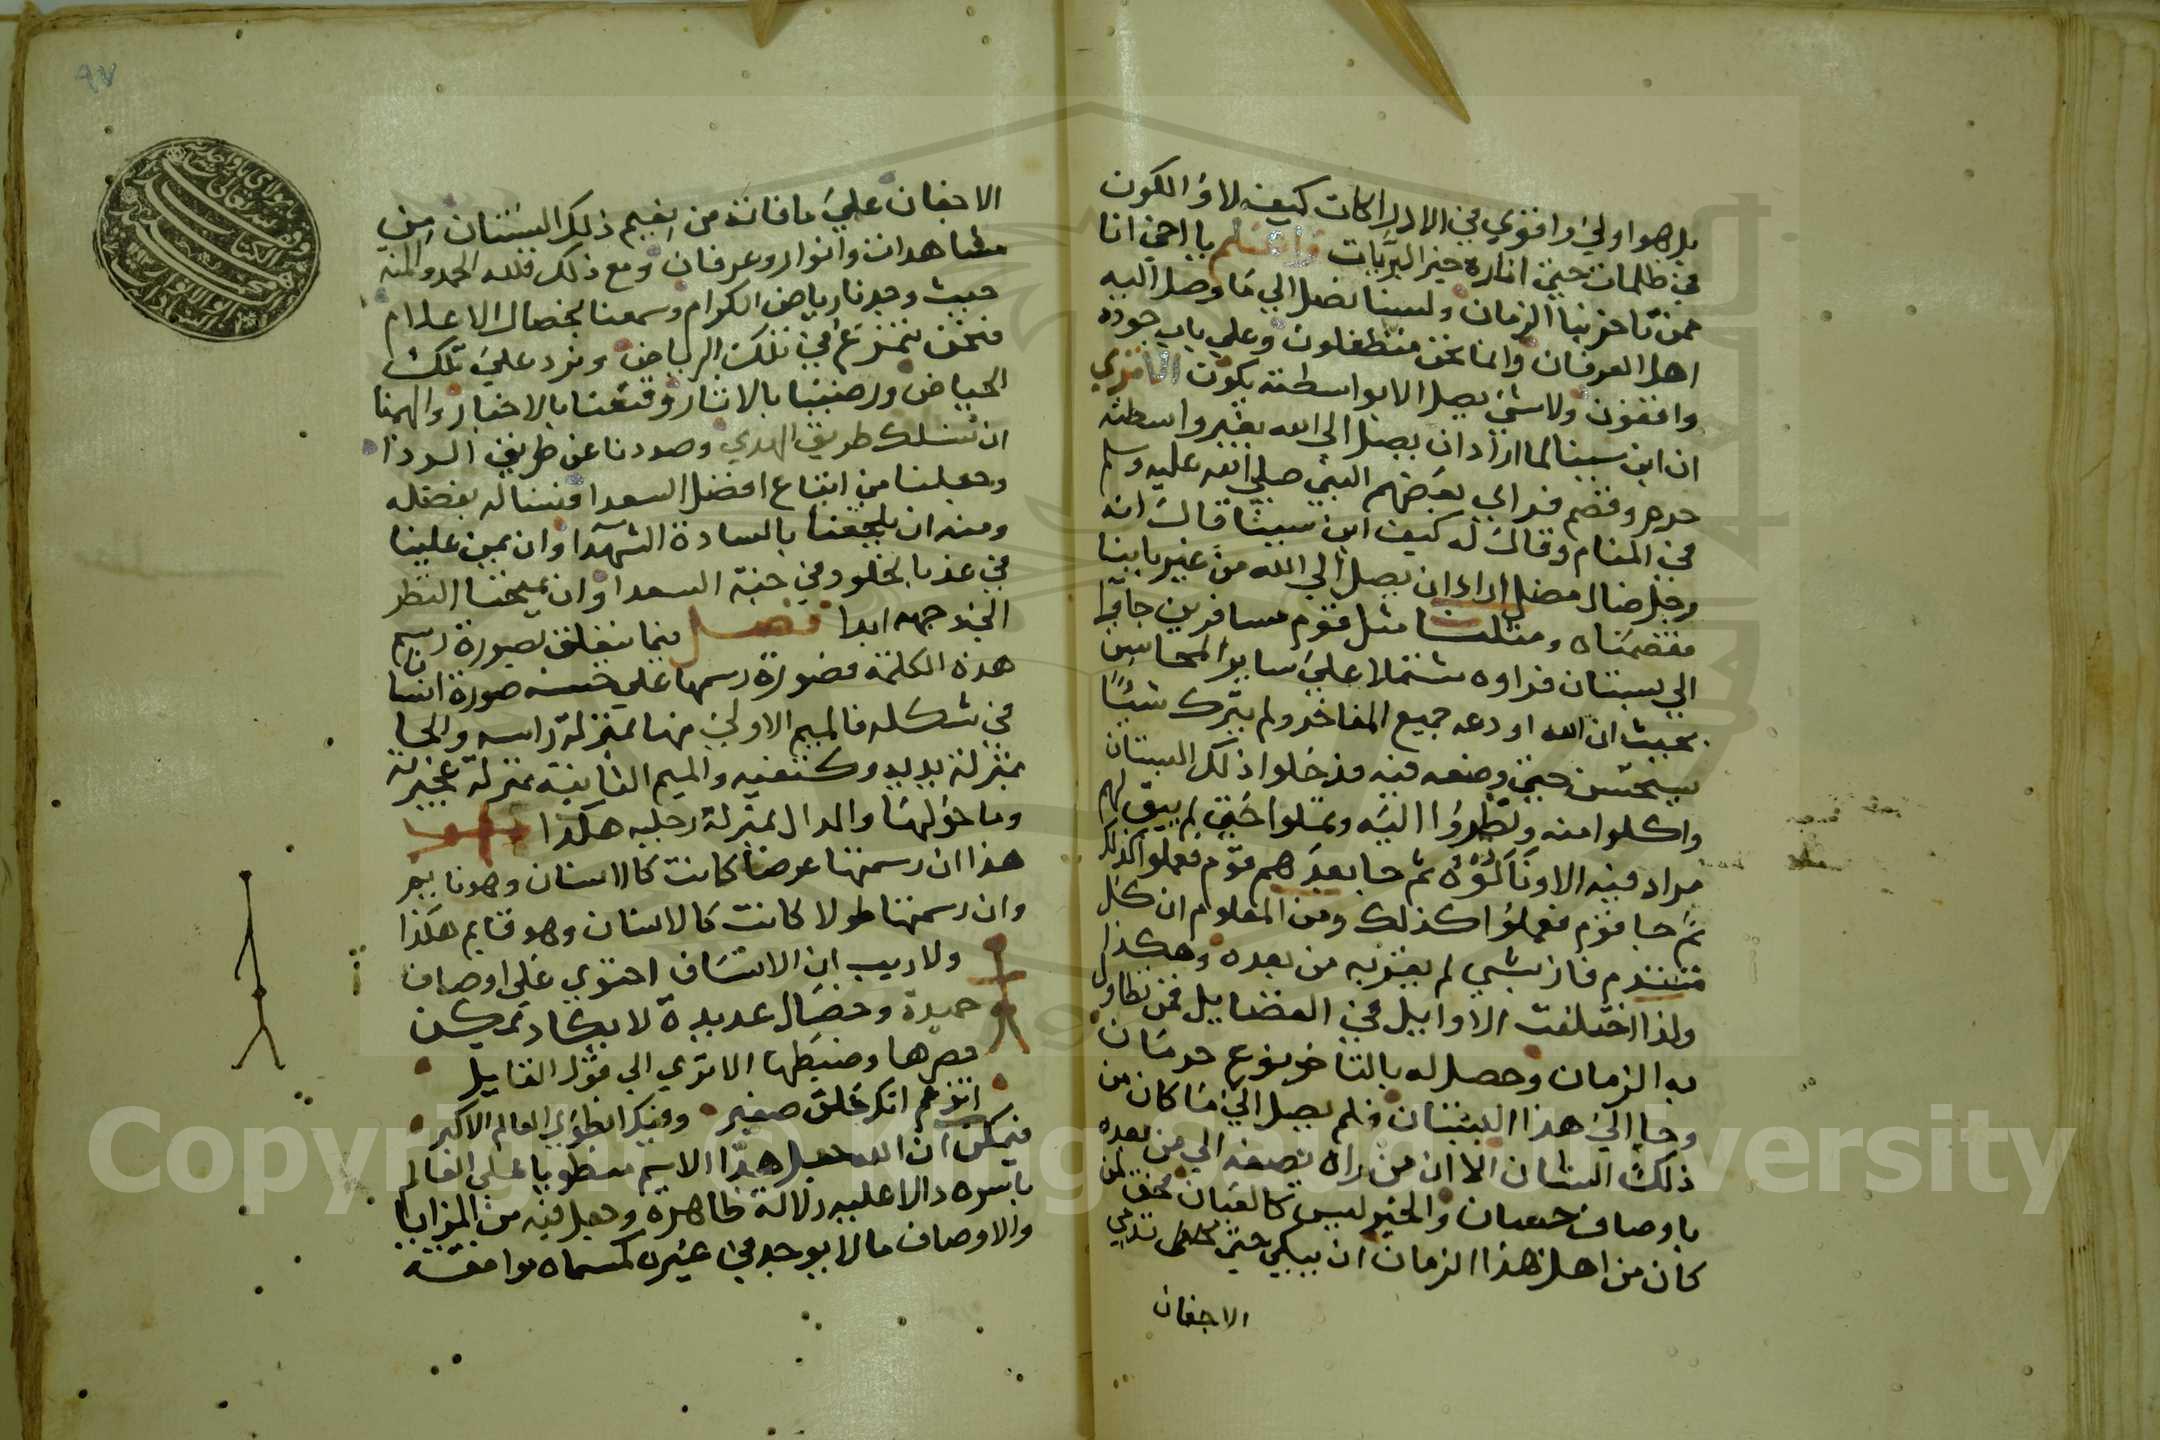 بل هو اولي واقوي في الادراكات كيف لا والكون
في ظلمات حتى اناره خير البريات واعلم يا اخي انا
ممن تاخر بنا الزمان ولسنا نصل الي ما وصل اليه
اهل العرفان وانما نحن متطفلون وعلي باب جوده
واقفون ولا شي يصل الا بواسطته يكون الا تري
ان ابن سينا لما اراد ان يصل الى الله بغير واسطته
حرم وقصم فراي بعضهم النبي صلي الله عليه وسلم
في المنام وقال له كيف ابن سينا قال انه
رجل ضال مضل اراد ان يصل الي الله من غير بابنا
فقصمناه ومثلنا مثل قوم مسافرين جاوا
الي بستان فراوه مشتملا علي ساير المحاسن
بحيث ان الله اودعه جميع المفاخر ولم يترك شيئا
يستحسن حتى وضعه فيه فدخلوا ذلك البستان
واكلوا منه ونظروا اليه وتملوا حتي لم يبق لهم
مراد فيه الا ونالوه ثم جا بعدهم قوم فعملوا كذلك
ثم جا قوم فعملوا كذلك ومن المعلوم ان كل
متقدم فاز بشي لم يفز به من بعده وهكذا
ولذا اختلفت الاوايل في الفضايل فمن تطاول
به الزمان وحصل له بالتاخر نوع حرمان
وجا الي هذا البستان فلم يصل الي ما كان من
ذلك الشان الا ان من راه يصفه الي من بعده
باوصاف حسان والخبر ليس كالعيان فحق لمن
كان من اهل هذا الزمان ان يبكي حتى
الاجفان
٩٧
الاجفان علي ما فاته من نعيم ذلك البستان من
مشاهدات وانوار وعرفان ومع ذلك فلله الحمد والمنه
حيث وجدنا رياض الكرام وسمعنا بخصال الاعلام
فنحن نتمزغ في تلك الرياض ونرد علي تلك
الحياض ورضينا بالاثار وقنعنا بالاخبار والهمنا
ان نسلك طريق الهدي وصددنا عن طريق الردا
وجعلنا من اتباع افضل السعدا فنساله بفضله
ومنه ان يلحقنا بالسادة الشهدا وان يمن علينا
في غد بالخلود في جنة السعدا وان يمنحنا النظر
الي وجهه ابدا فصل فيما يتعلق بصورة رسم
هذه الكلمة فصورة رسمها علي صورة انسان
في شكله فالميم الاولي منها بمنزلة راسه والحا
بمنزلة يديه وكتفيه والميم الثانية بمنزلة عجيزته
وما حولها والدال بمنزلة رجليه هكذا
هذا ان رسمتها عرضا كانت كالانسان وهو نايم
وان رسمتها طولا كانت كالانسان وهو قايم هكذا
ولا ريب ان الانسان احتوي على اوصاف
حميدة وخصال عديدة لا يكاد يمكن
حصرها وضبطها الا تري الي قول القايل
اتزعم انك خلق صغير وفيك انطوي العالم الاكبر
فيمكن ان الله جعل هذا الاسم منطويا على العالم
باسره دالا عليه دلالة ظاهرة وجعل فيه من المزايا
والاوصاف ما لا يوجد في غيره كمسماه موافقة
Copyright © King Saud University